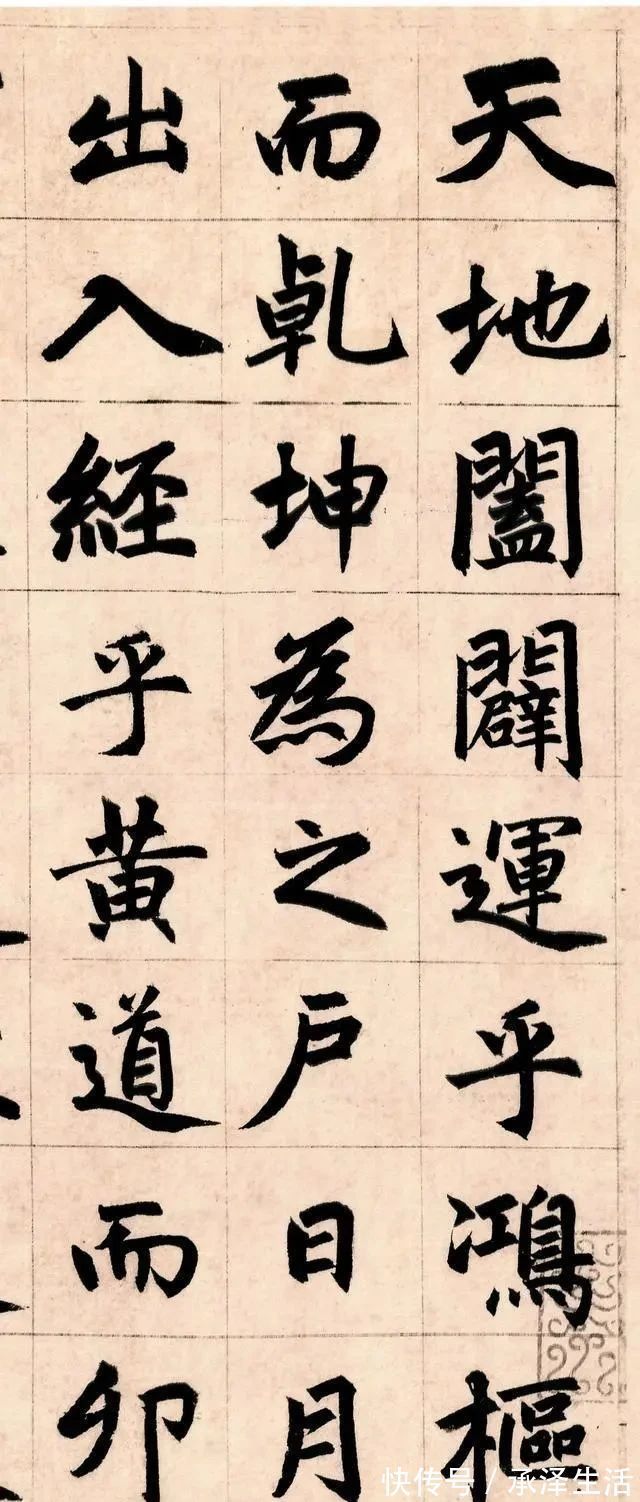 天地闔闢運乎鴻樞
而乹坤為之户日月
出入經乎黄道而卯
快传号／承泽生活